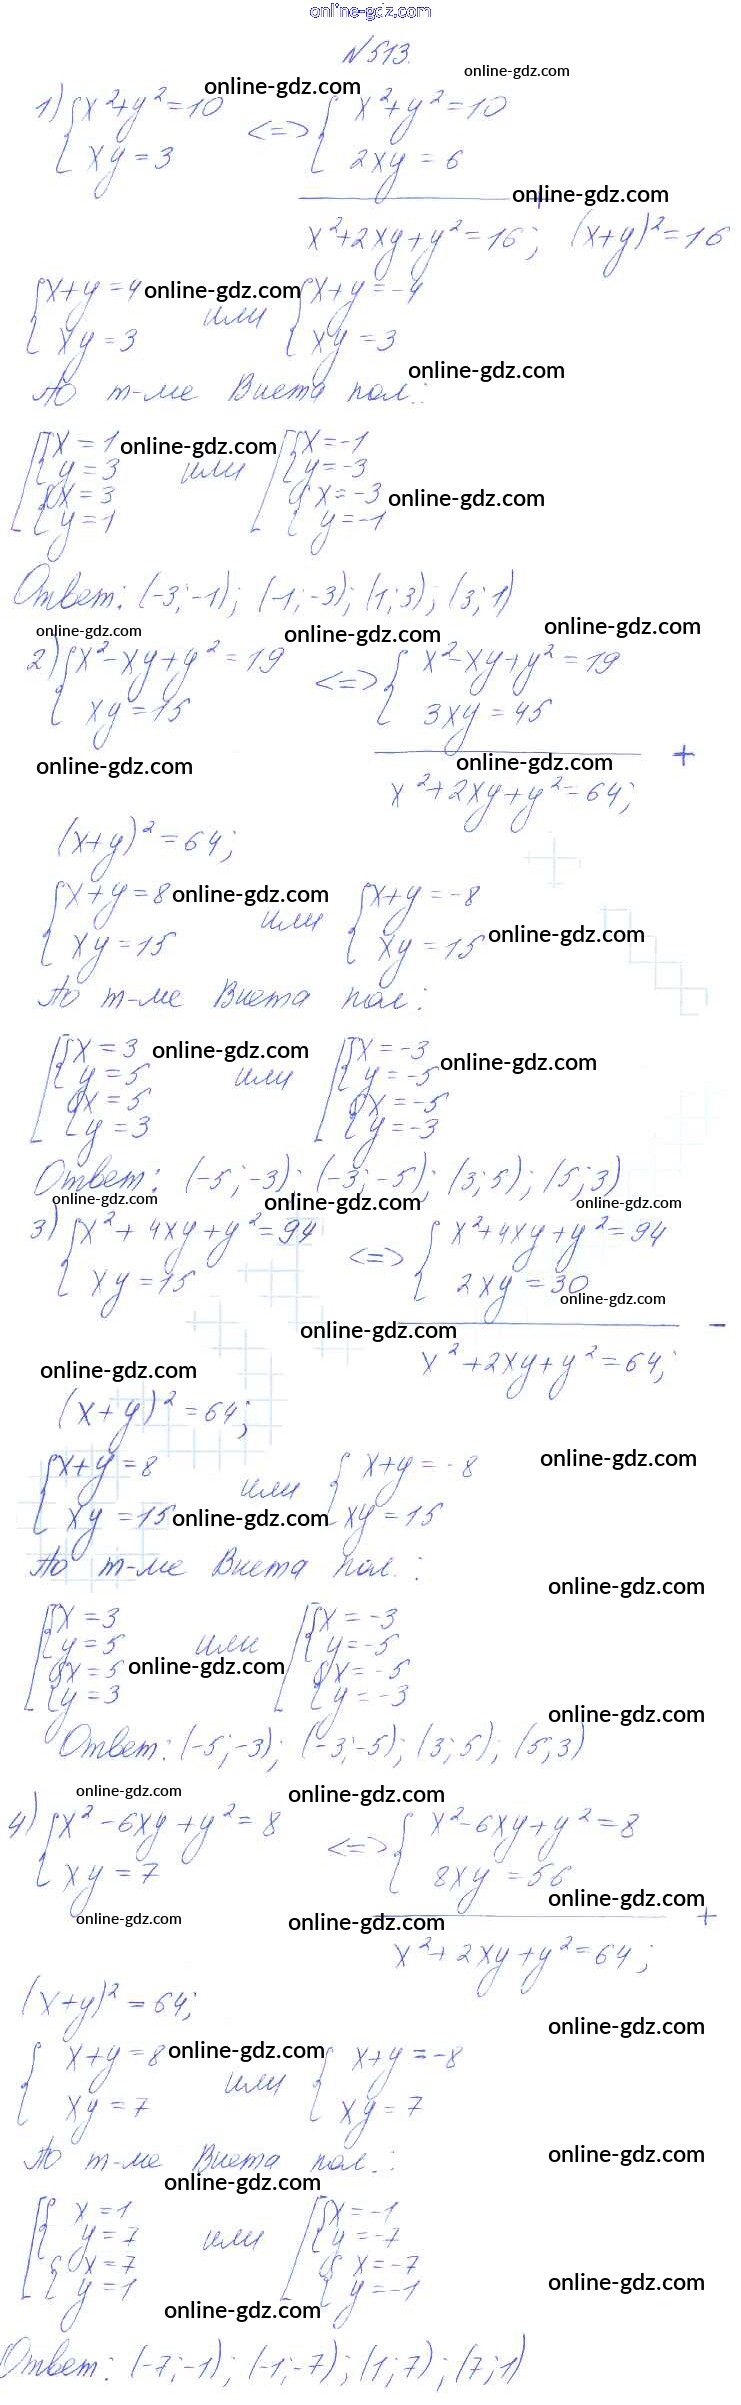 online-gdz.com
N513.
online-gdz.com
online-gdz.com
1) {x²+y²=10 <=> {x²+y²=10
xy=3 2xy=6
online-gdz.com
+
x²+2xy+y²=16; (x+y)²=16
{x+y=4 online-gdz.com {x+y=-4
или
xy=3 xy=3
online-gdz.com
По т-ме Виета пол.:
[{x=1 online-gdz.com [{x=-1
y=3 или y=-3
{x=3 {x=-3 online-gdz.com
y=1 y=-1
Ответ: (-3;-1); (-1;-3); (1;3); (3;1)
online-gdz.com online-gdz.com online-gdz.com
2) {x²-xy+y²=19 <=> {x²-xy+y²=19
xy=15 3xy=45
online-gdz.com online-gdz.com +
x²+2xy+y²=64;
(x+y)²=64;
{x+y=8 online-gdz.com {x+y=-8
или
xy=15 xy=15 online-gdz.com
По т-ме Виета пол:
[{x=3 online-gdz.com [{x=-3 online-gdz.com
y=5 или y=-5
{x=5 {x=-5
y=3 y=-3
Ответ: (-5;-3); (-3;-5); (3;5); (5;3)
online-gdz.com online-gdz.com online-gdz.com
3) {x²+4xy+y²=94 <=> {x²+4xy+y²=94
xy=15 2xy=30
online-gdz.com
online-gdz.com -
x²+2xy+y²=64;
online-gdz.com
(x+y)²=64;
{x+y=8 {x+y=-8 online-gdz.com
или
xy=15 online-gdz.com xy=15
По т-ме Виета пол.:
online-gdz.com
[{x=3 [{x=-3
y=5 или y=-5
{x=5 online-gdz.com {x=-5
y=3 y=-3
online-gdz.com
Ответ: (-5;-3); (-3;-5); (3;5); (5;3)
online-gdz.com online-gdz.com
4) {x²-6xy+y²=8 <=> {x²-6xy+y²=8
xy=7 8xy=56
online-gdz.com
online-gdz.com online-gdz.com +
x²+2xy+y²=64;
(x+y)²=64;
online-gdz.com
{x+y=8 online-gdz.com {x+y=-8
или
xy=7 xy=7
По т-ме Виета пол.:
online-gdz.com
online-gdz.com
[{x=1 [{x=-1
y=7 или y=-7
{x=7 {x=-7
y=1 y=-1
online-gdz.com
online-gdz.com
Ответ: (-7;-1); (-1;-7); (1;7); (7;1)